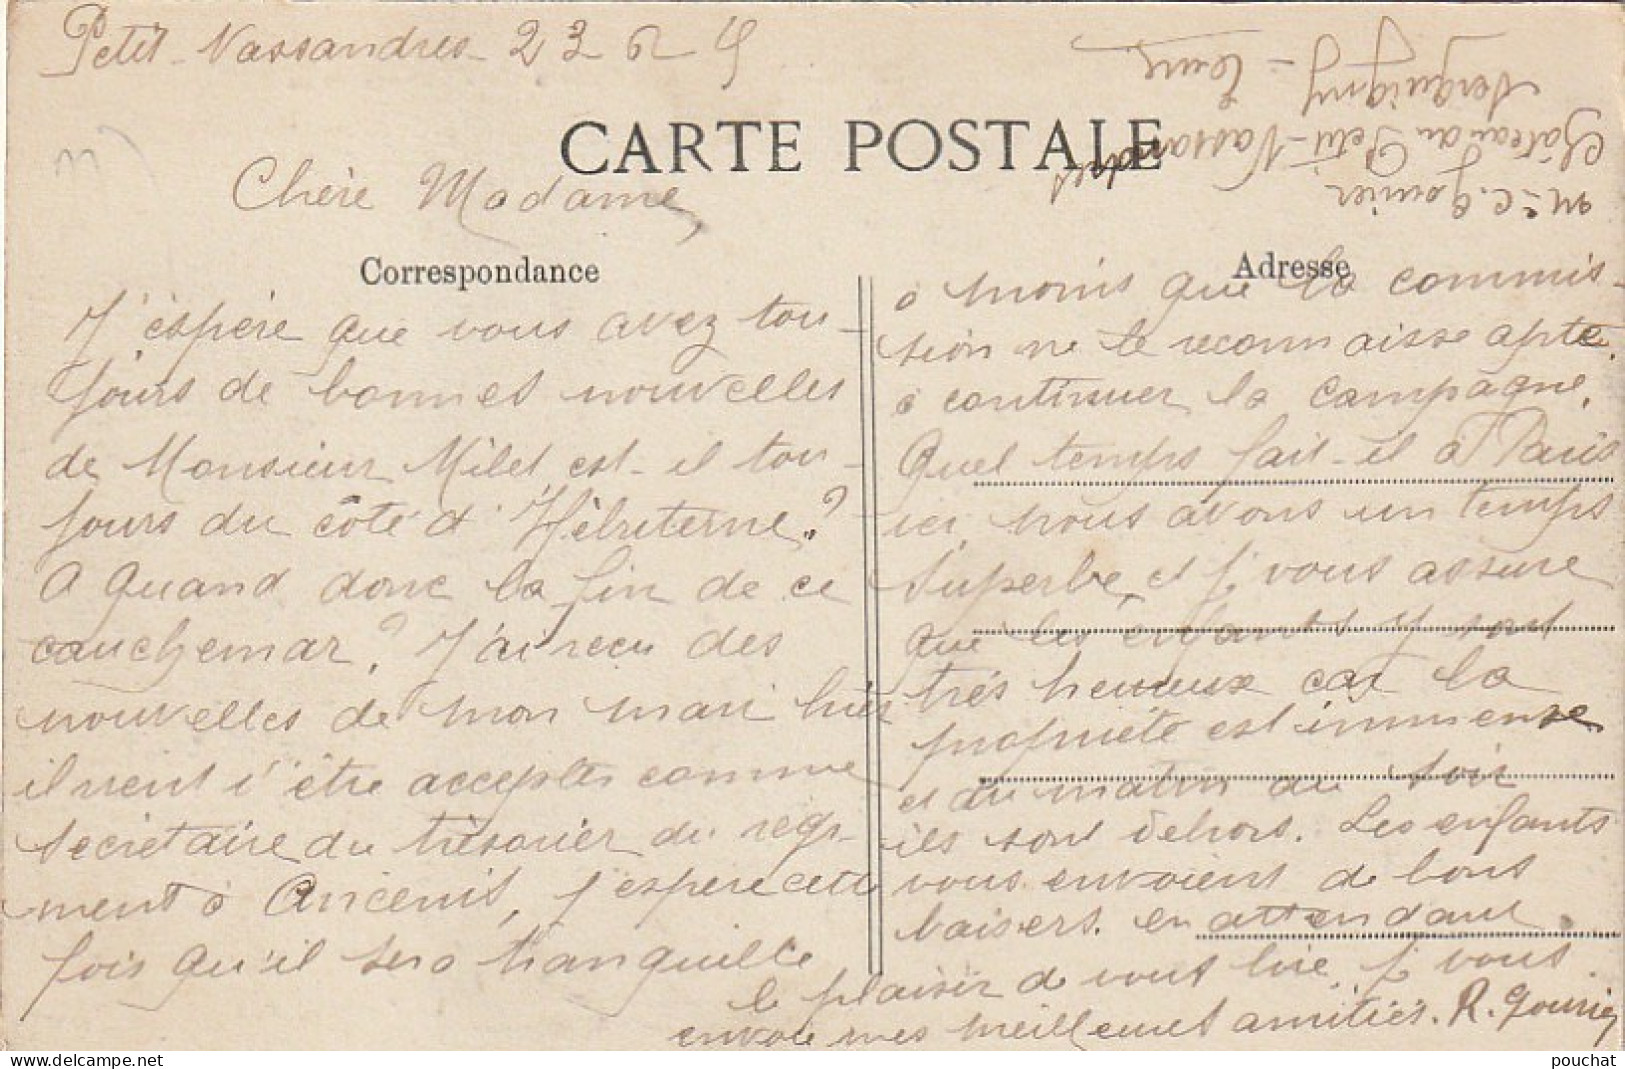 Petit-Nassandres 23 6
CARTE POSTALE
Chère Madame,
Correspondance
J'éspère que vous avez tou-
jours de bonnes nouvelles
de Monsieur Milet, est-il tou-
jours du côté d'Hébuterne?
A quand donc la fin de ce
cauchemar? J'ai recu des
nouvelles de mon mari hier
il vient d'être accepter comme
secrétaire du trésorier du régi-
ment à Ancenis, j'espère cette
fois qu'il sera tranquille
Adresse
à moins que la commis-
sion ne le reconnaisse apte
à continuer la campagne.
Quel temps fait-il à Paris
ici, nous avons un temps
superbe, et j'vous assure
que les enfants y sont
très heureux car la
propriété est immense
et du matin au soir
ils sont dehors. Les enfants
vous envoient de bons
baisers. en attendant
le plaisir de vous lire, j'vous
envoie mes meilleures amitiés. R. Gounier
Me C. Gounier
Château du Petit-Nassandres
Serquigny - Eure
pouchat